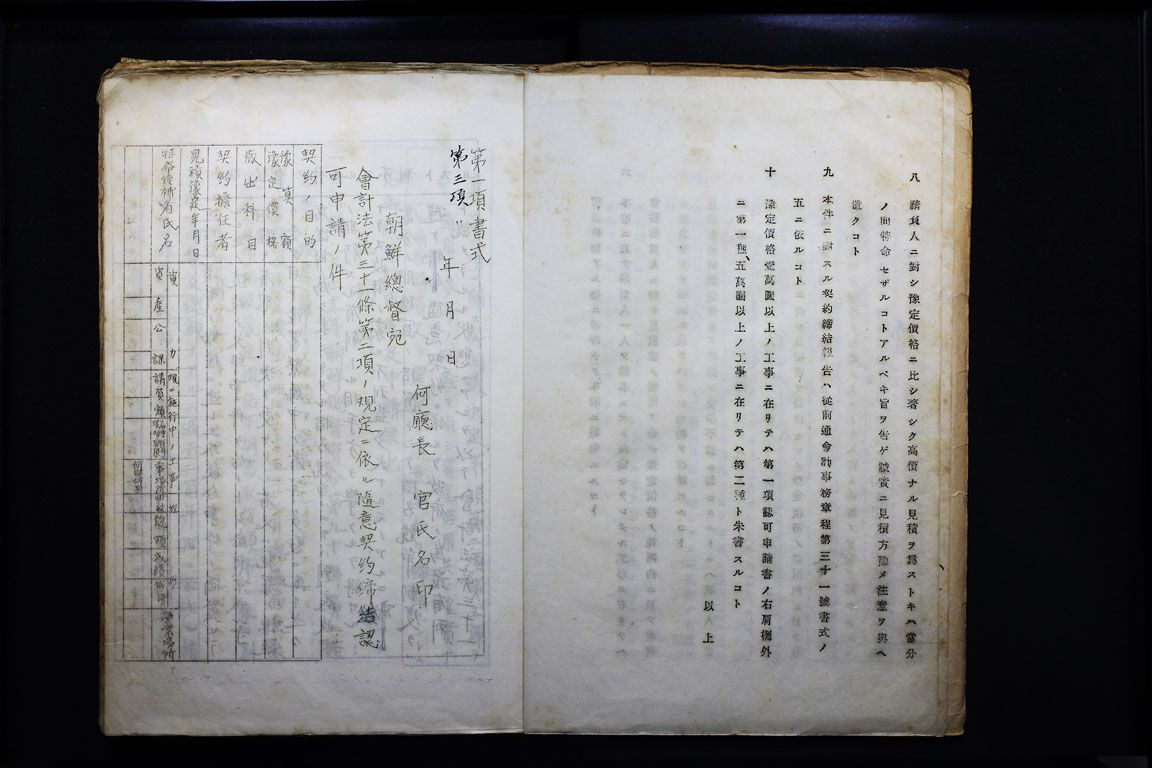 八 請負人ニ對シ豫定價格ニ比シ著シク高價ナル見積ヲ爲ストキハ當分
ノ間特命セザルコトアルベキ旨ヲ告ゲ誠實ニ見積方豫メ注意ヲ與ヘ
置クコト
九 本件ニ對スル契約締結報告ハ從前通會計事務章程第三十一號書式ノ
五ニ依ルコト
十 豫定價格壹萬圓以上ノ工事ニ在リテハ第一項認可申請書ノ右肩欄外
ニ第一種、五萬圓以上ノ工事ニ在リテハ第二種ト朱書スルコト
以上
第一項書式
第三項〃
年 月 日
何廳長 官氏名印
朝鮮總督宛
會計法第三十一條第二項ノ規定ニ依ル隨意契約締結認
可申請ノ件
契約ノ目的
豫算額
豫定價格
歲出科目
契約擔任者
見積豫定年月日
特命技術者氏名
資力
現ニ施行中ノ工事
資產
公課
請負額
總額
成績
信用